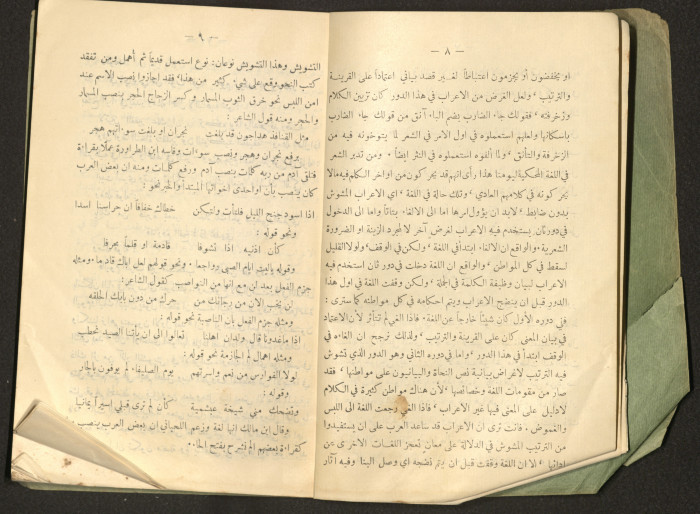 — ٨ —
او يخفضون او يجزمون اعتباطاً لغير قصد بياني اعتماداً على القرينة
والترتيب ، ولعل الغرض من الاعراب في هذا الدور كان تزيين الكلام
وزخرفته ، فقولك جاء الضارب بضم الباء آنق من قولك جاء الضارب
باسكانها ولعلهم استعملوه في اول الامر في الشعر لما يتوخونه فيه من
الزخرفة والتأنق ، ولما ألفوه استعملوه في النثر ايضاً . ومن تدبر الشعر
في اللغة المحكية ليومنا هذا رأى انهم قد يحركون من اواخر الكلم فيه مالا
يحركونه في كلامهم العادي ، وتلك حالة في اللغة ، اي الاعراب المشوش
بدون ضابط ، لابد ان يؤول امرها اما الى الالغاء بتاتاً واما الى الدخول
في دور ثان يستخدم فيه الاعراب لغرض آخر لا لمجرد الزينة او الضرورة
الشعرية . والواقع ان الالغاء ابتدأ في اللغة ، ولكن في الوقف ، ولولا القليل
لسقط في كل المواطن ، والواقع ان اللغة دخلت في دور ثان استخدم فيه
الاعراب لبيان وظيفة الكلمة في الجملة ، ولكن وقفت اللغة في اول هذا
الدور قبل ان ينضج الاعراب ويتم احكامه في كل مواطنه كما سترى :
ففي دوره الأول كان شيئاً خارجاً عن اللغة . فاذا الغي لم تتأثر لأن الاعتماد
في بيان المعنى كان على القرينة والترتيب ، ولذلك نرجح ان الغاءه في
الوقف ابتدأ في هذا الدور ، واما في دوره الثاني وهو الدور الذي تشوش
فيه الترتيب لأغراض بيانية نص النحاة والبيانيون على مواطنها ، فقد
صار من مقومات اللغة وخصائصها ، لأن هناك مواطن كثيرة في الكلام
لا دليل على المعنى فيها غير الاعراب ، فاذا الغي رجعت اللغة الى اللبس
والغموض . فانت ترى ان الاعراب قد ساعد العرب على ان يستفيدوا
من الترتيب المشوش في الدلالة على معان تعجز اللغات الاخرى عن
ادائها ، الا ان اللغة وقفت قبل ان يتم نضجه اي وصل الينا وفيه آثار
— ٩ —
التشويش وهذا التشويش نوعان : نوع استعمل قديماً ثم أهمل ومن تفقد
كتب النحو وقع على شيء كثير من هذا ، فقد اجازوا نصب الاسم عند
امن اللبس نحو خرق الثوب المسمار وكسر الزجاج الحجر بنصب المسمار
والحجر ومنه قول الشاعر :
مثل القنافذ هداجون قد بلغت نجران او بلغت سوءاتهم هجر
برفع نجران وهجر ونصب سوءات وقاسه ابن الطراوة عملاً بقراءة
فتلقى آدم من ربه كلمات بنصب آدم ورفع كلمات ومنه ان بعض العرب
كان ينصب بأن او احدى اخواتها المبتدأ والخبر نحو :
اذا اسود جنح الليل فلتأت ولتكن خطاك خفافاً ان حراسنا اسدا
ونحو قوله :
كأن اذنيه اذا تشوفا قادمة او قلماً محرفا
وقوله ياليت ايام الصبى رواجعا . ونحو قولهم لعل اباك قادما . ومثله
جزم الفعل بعد لن مع انها من النواصب كقول الشاعر :
لن يخب الآن من رجائك من حرك من دون بابك الحلقه
ومثله جزم الفعل بأن الناصبة نحو قوله :
اذا ما غدونا قال ولدان اهلنا تعالوا الى ان يأتنا الصيد نحطب
ومثله اهمال لم الجازمة نحو قوله :
لولا الفوارس من نعم واسرتهم يوم الصليفاء لم يوفون بالجار
وقوله :
وتضحك مني شيخة عبشمية كأن لم ترى قبلي اسيراً يمانيا
وقال ابن مالك انها لغة وزعم اللحياني ان بعض العرب ينصب بها
كقراءة بعضهم الم نشرح بفتح الحاء .